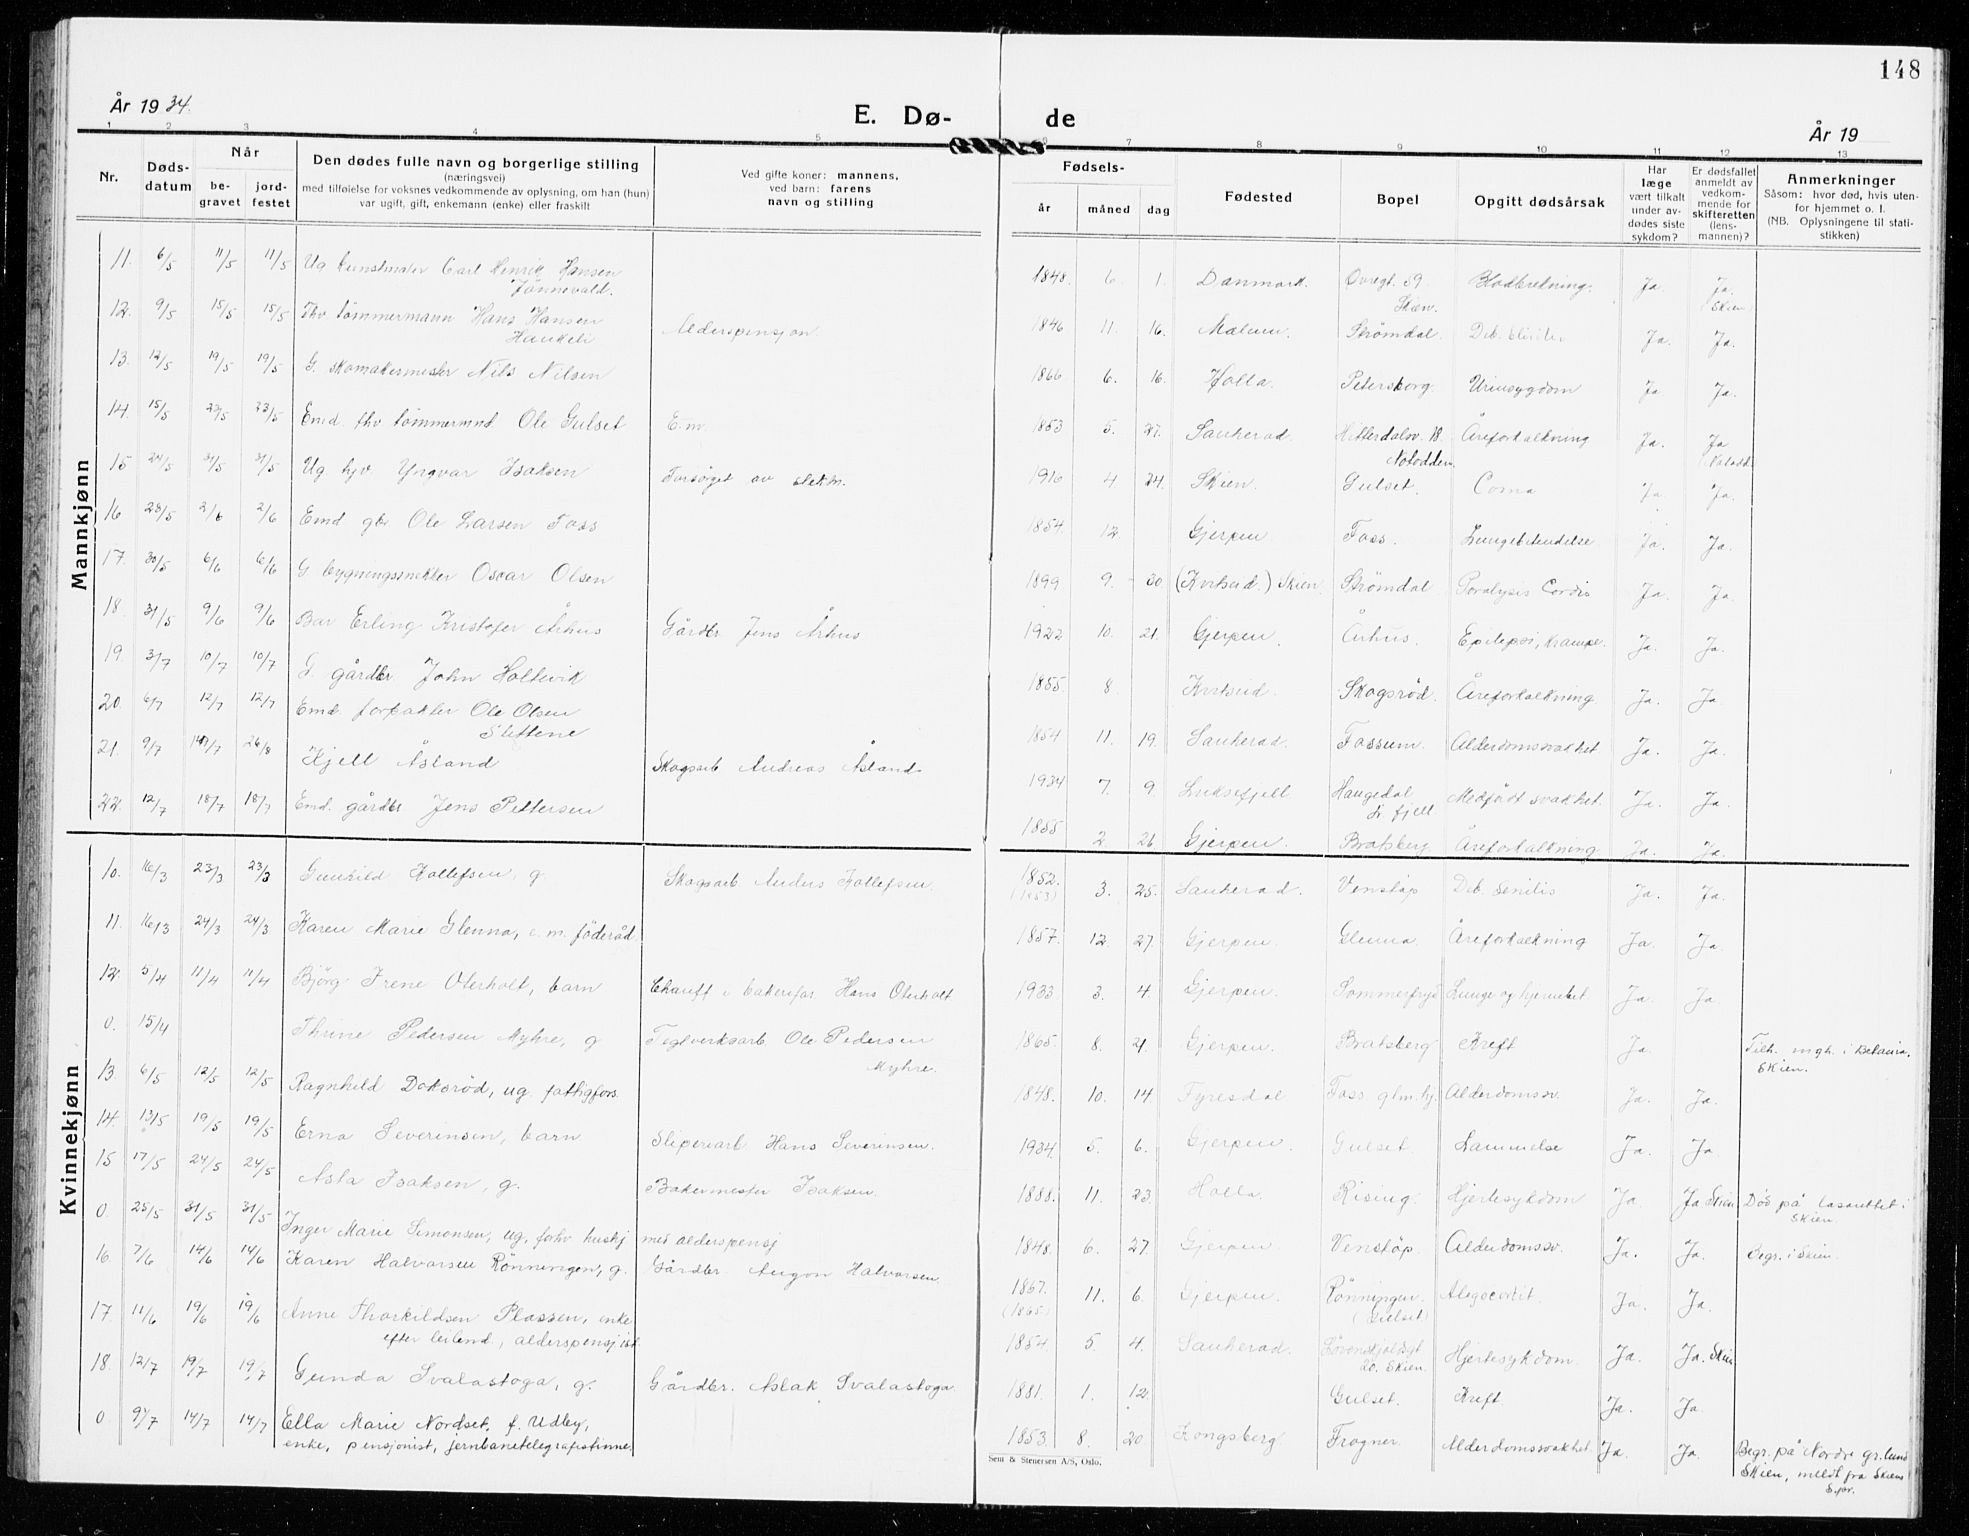 148
År 1934.
E. Dø- de
År 19
1 2 3 4 5 6 7 8 9 10 11 12 13
Nr.
Døds-
datum
Når
be-
gravet
jord-
festet
Den dødes fulle navn og borgerlige stilling
(næringsvei)
med tilføielse for voksnes vedkommende av oplysning, om han (hun)
var ugift, gift, enkemann (enke) eller fraskilt
Ved gifte koner: mannens,
ved barn: farens
navn og stilling
Fødsels-
år måned dag
Fødested
Bopel
Opgitt dødsårsak
Har
læge
vært tilkalt
under av-
dødes siste
sykdom?
Er dødsfallet
anmeldt av
vedkom-
mende for
skifteretten
(lens-
mannen)?
Anmerkninger
Såsom: hvor død, hvis uten-
for hjemmet o. l.
(NB. Oplysningene til stati-
stikken)
Mannkjønn
11. 6/5 11/5 11/5 Ug kunstmaler Carl Henrik Hansen 1848. 6. 1. Danmark. Øvregt. 59. Ja. Ja.
Jönnevald. Skien. (Skien)
12. 9/5 15/5 15/5 Fhv tömmermann Hans Hansen Alderspensjon 1846 11. 16. Mælum. Strömdal. Ja. Ja.
Haukeli
13. 12/5 19/5 19/5 G. skomakermester Nils Nilsen 1866 6. 16. Holla. Petersborg. Urinsygdom Ja Ja.
14. 15/5 23/5 23/5 Emd. fhv tömmermnd Ole Gulset E.m. 1853 5. 27. Sauherad. Hitterdalsv. 18. Åreforkalkning Ja. Ja
Notodden. (Notodd.)
15 24/5 31/5 31/5 Ug hjv Yngvar Isaksen Forsörget av slektn. 1916 4 24. Skien. Gulset. Coma Ja. Ja.
16 28/5 2/6 2/6 Emd gbr Ole Larsen Foss 1854. 12. Gjerpen Foss. Lungebetendelse Ja. Ja.
17. 30/5 6/6 6/6 G. bygningssnekker Oscar Olsen 1899. 9. 30 (Kviteseid.) Skien. Strömdal Paralysis Cordis Ja. Ja.
18. 31/5 9/6 9/6 Bar Erling Kristofer Århus Gårdbr Jens Århus 1922 10. 21. Gjerpen. Århus. Epilepsi, krampe. Ja. Ja.
19. 3/7 10/7 10/7 G. gårdbr. John Holtevik 1855. 8. Kviteseid. Skogsröd. Åreforkalkning Ja. Ja.
20. 6/7 12/7 12/7 Emd. forpakter Ole Olsen 1854 11. 19. Sauherad. Fossum. Alderdomssvakhet Ja. Ja.
Slettene
21. 9/7 26/8 Kjell Åsland Skogsarb Andreas Åsland. 1934 7. 9 Luksefjell Haugedal Medfödt svakhet. Ja. Ja.
L. fjell
22. 12/7 18/7 18/7 Emd. gårdbr Jens Pettersen 1855 2 26 Gjerpen. Bratsberg. Åreforkalkning Ja. Ja.
Kvinnekjønn
10. 16/3 23/3 23/3 Gunhild Kollefsen, g. Skogsarb Anders Kollefsen. 1852. 3. 25. Sauherad. Venstöp Deb. Senilis Ja. Ja.
(1853)
11. 16/3 24/3 24/3 Karen Marie Glenna, e.m. föderåd 1857. 12. 27. Gjerpen. Glenna. Åreforkalkning Ja. Ja.
12. 5/4 11/4 11/4 Björg Irene Oterholt, barn Chauff i bakerifor. Hans Oterholt 1933 3. 4. Gjerpen. Sommerfryd Lunge og hjernebet Ja. Ja
0. 15/4 Thrine Pedersen Myhre, g Teglverksarb Ole Pedersen 1865. 8. 21. Gjerpen. Bratsberg Kreft Ja. Tilh. mgh. i Betania,
Myhre. Skien.
13. 6/5 12/5 12/5 Ragnhild Doksröd, ug. fattigfors. 1848. 10. 14 Fyresdal Foss glm.hj. Alderdomssv. Ja. Ja.
14. 13/5 19/5 19/5 Erna Severinsen, barn Sliperiarb Hans Severinsen. 1934. 5. 6. Gjerpen. Gulset. Lammelse Ja. Ja.
15 17/5 24/5 24/5 Asta Isaksen, g. Bakermester Isaksen. 1888. 11. 23. Holla. Rising. Hjertesykdom Ja. Ja Skien Död på lasarettet i
Skien.
0. 25/5 31/5 31/5 Inger Marie Simonsen, ug, forhv hushj med alderspensj 1848. 6. 27. Gjerpen. Venstöp. Alderdomssv. Ja. Ja. Begr. i Skien.
16. 7/6 14/6 14/6 Karen Halvorsen Rönningen, g. Gårdbr. Halvorsen 1867. 11. 6. Gjerpen. Rönningen. Ja. Ja.
(1865) (Gulset)
17. 11/6 19/6 19/6 Anne Thorkildsen Plassen, enke 1854. 5. 4. Sauherad. Lövenskjoldsgt Hjertesykdom. Ja. Ja. Skien
efter leilend, alderspensjist 20. Skien.
18. 12/7 19/7 19/7 Gunda Svalastoga, g. Gårdbr. Aslak Svalastoga. 1881. 1. 12. Gulset. Kreft. Ja. Ja.
0. 9/7 14/7 14/7 Ella Marie Nordset, f. Udby, 1853. 8. 20. Kongsberg Frogner. Alderdomssvakhet. Ja. Ja. Begr. på Nordre gr.lund
enke, pensjonist, jernbanetelegrafistinne. Skien, meldt fra Skiens
Spr.
Sem & Stenersen A/S, Oslo.